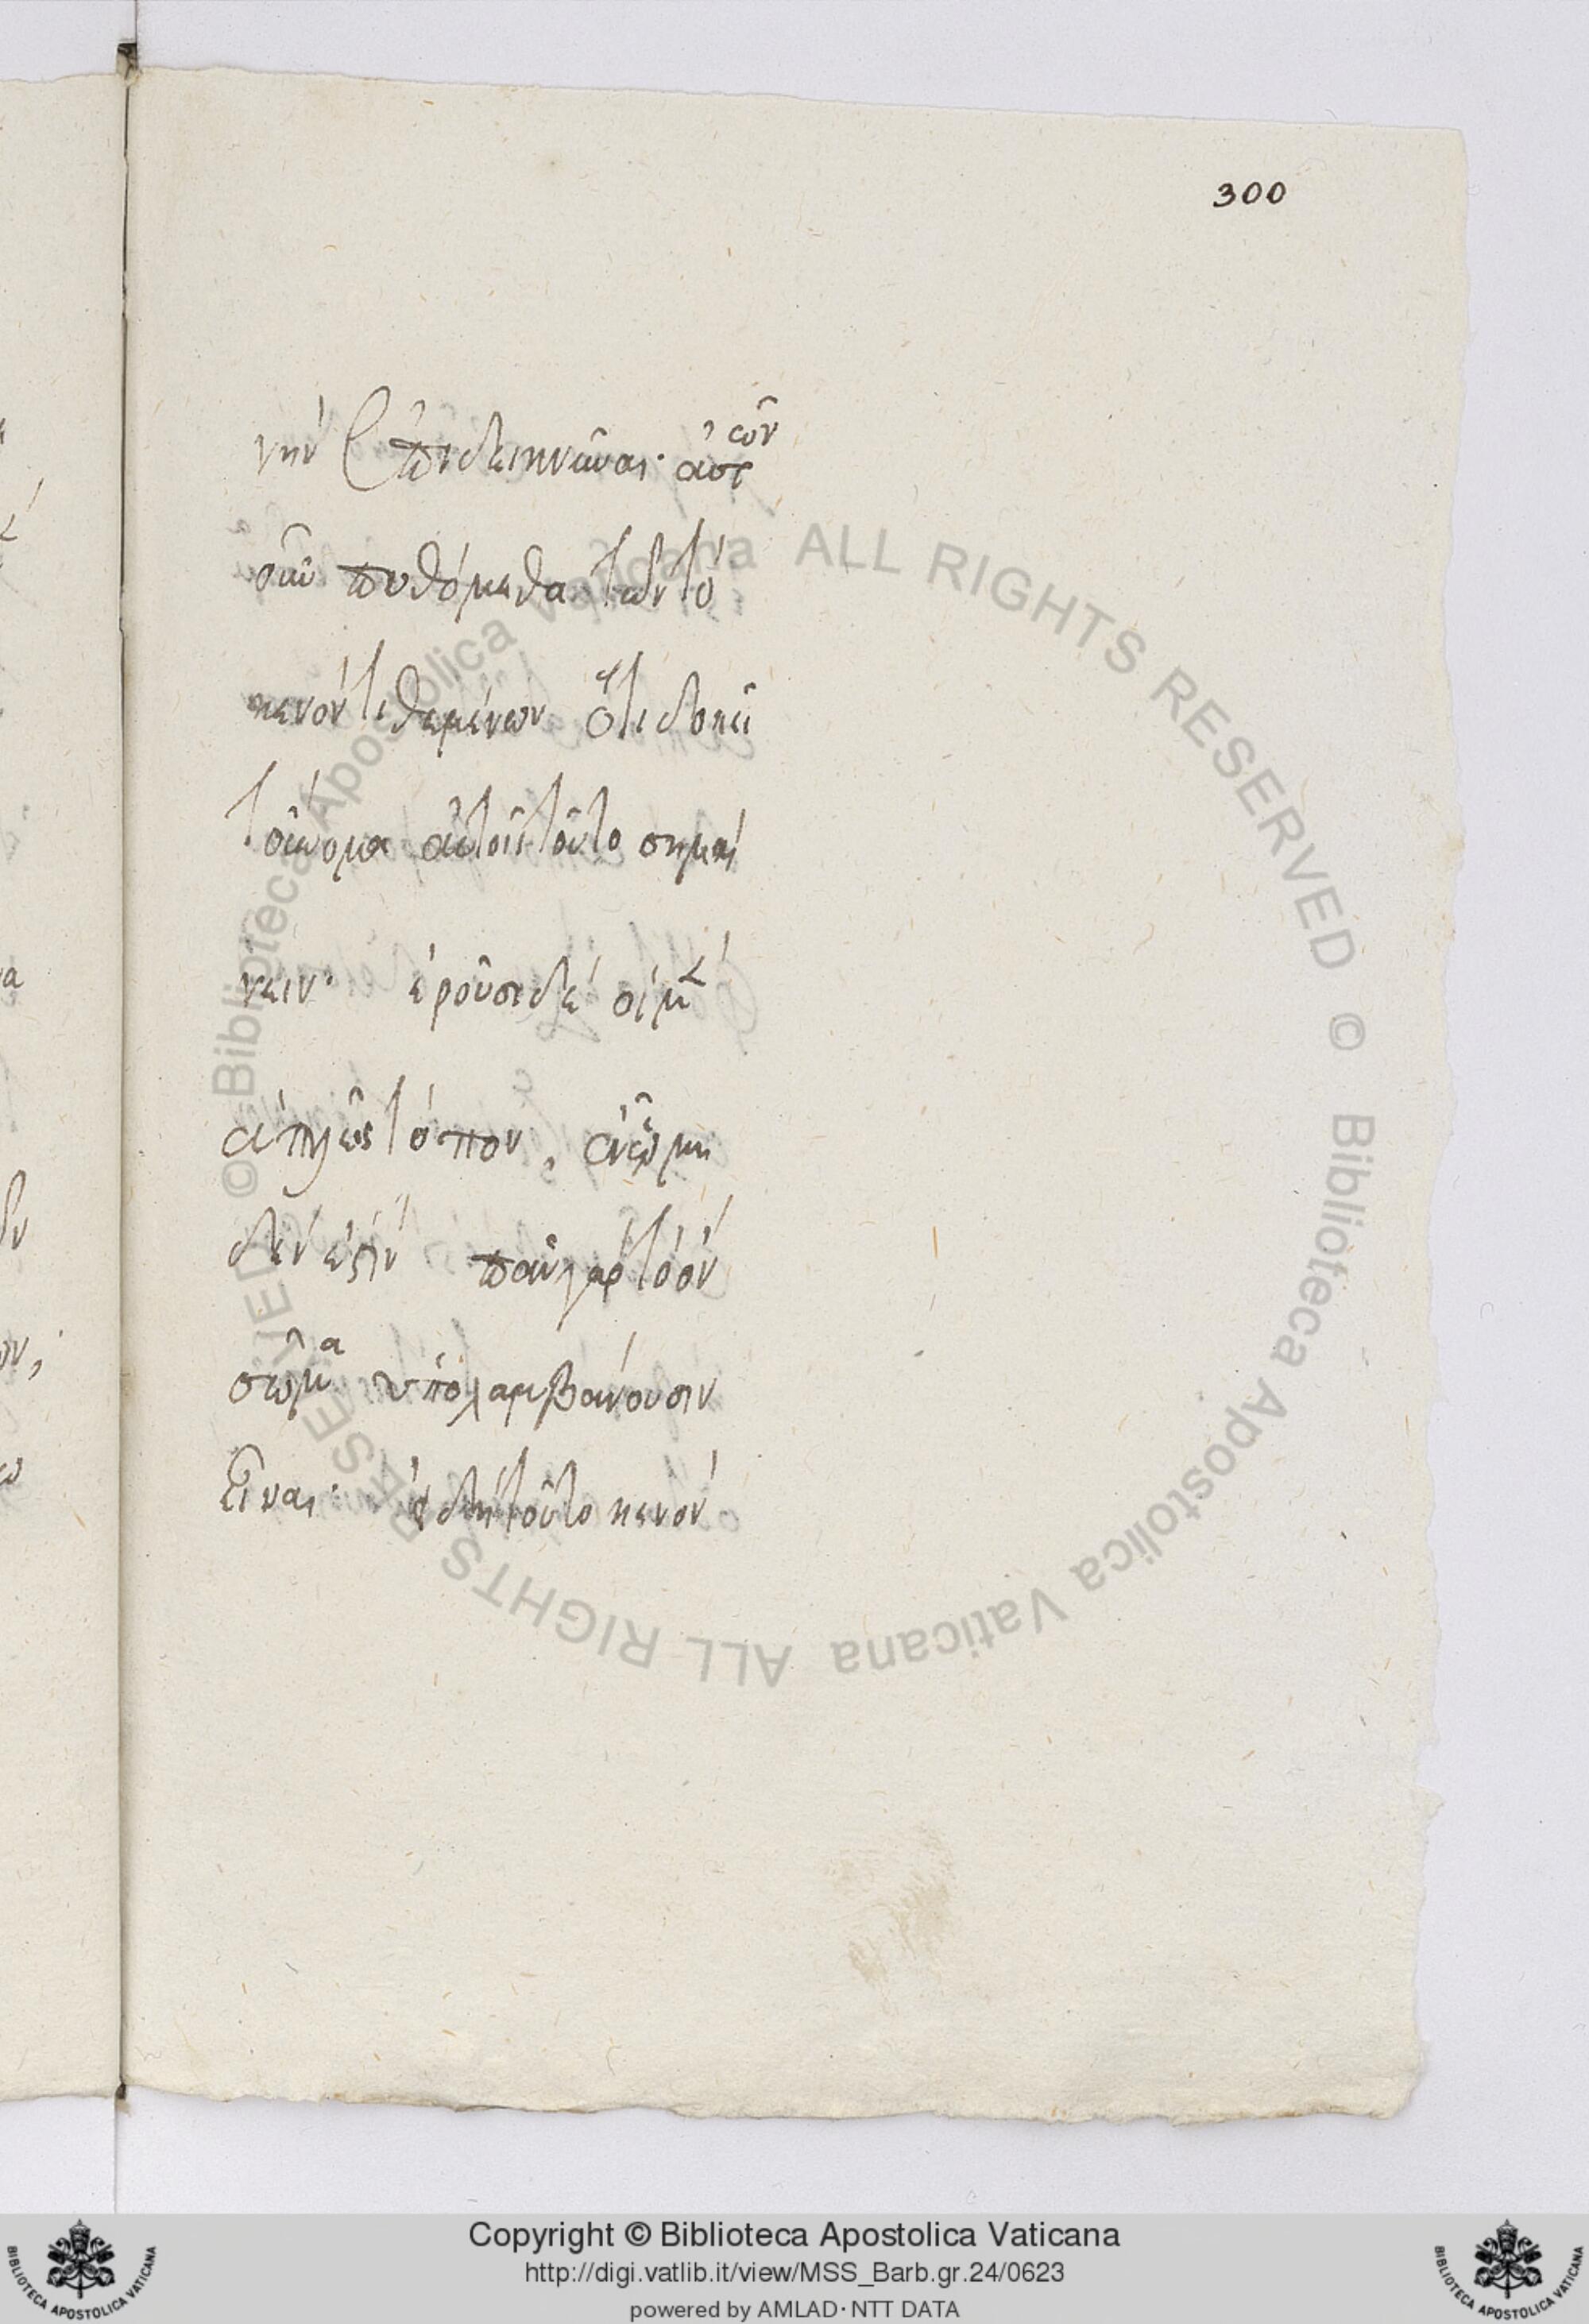 300
γὴν ἐπιδεικνῦναι· αὐτῶν
οὖν πυθόμεθα τῶν τὸ
κενὸν τιθεμένων ὅτι δοκεῖ
τοὔνομα αὐτοῖς τοῦτο σημαί
νειν· ἐροῦσι δέ οἱ μὲν
ἁπλῶς τόπον, ἐν ᾧ μη
δέν ἐστιν πᾶν γὰρ τὸ ὂν
σῶμα ὑπολαμβάνουσιν
εἶναι· εἰ δὴ τοῦτο κενὸν
© Biblioteca Apostolica Vaticana ALL RIGHTS RESERVED © Biblioteca Apostolica Vaticana ALL RIGHTS RESERVED
BIBLIOTECA APOSTOLICA VATICANA
Copyright © Biblioteca Apostolica Vaticana
http://digi.vatlib.it/view/MSS_Barb.gr.24/0623
powered by AMLAD·NTT DATA
BIBLIOTECA APOSTOLICA VATICANA